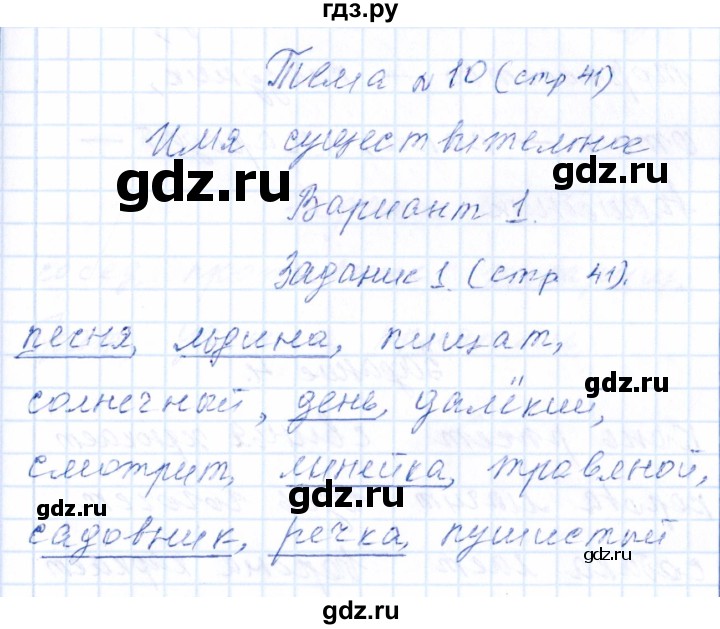 гдз.ру
Тема №10 (стр 41)
Имя существительное
gdz.ru
gdz.ru
Вариант 1.
Задание 1 (стр 41).
песня, льдина, пищат,
gdz.ru
солнечный, день, далёкий,
смотрит, линейка, травяной,
gdz.ru
gdz.ru
садовник, речка, пушистый
gdz.ru
gdz.ru